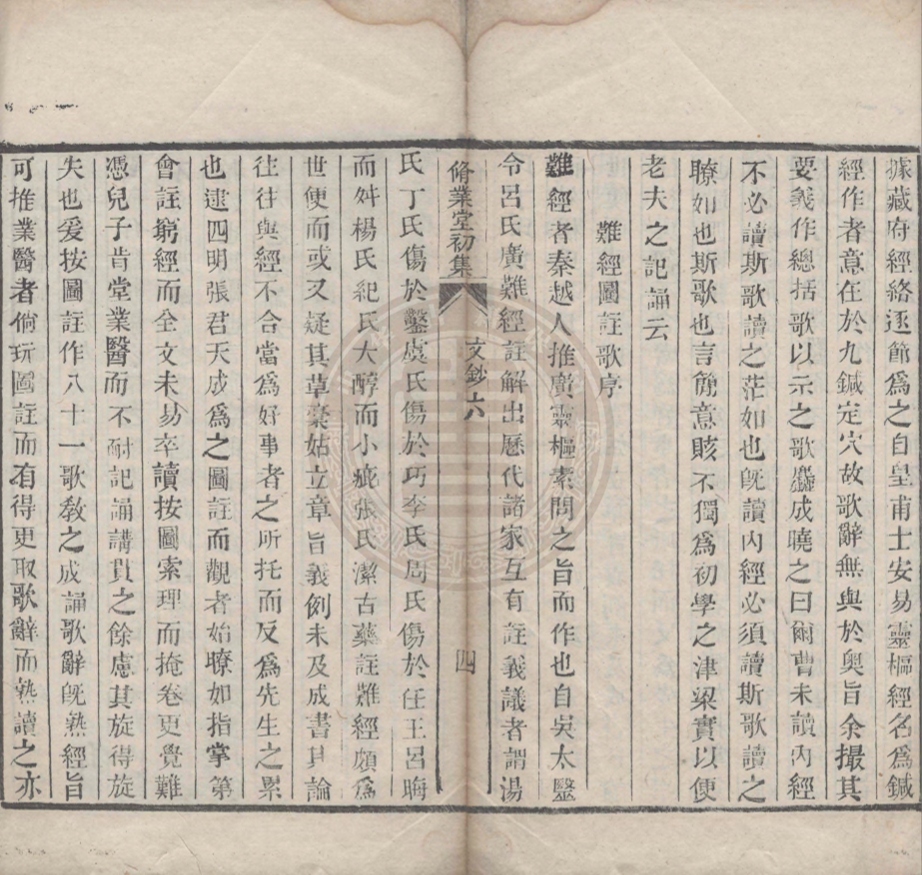 據藏府經絡逐節爲之自皇甫士安易靈樞經名爲鍼
經作者意在於九鍼定穴故歌辭無與於奥旨余撮其
要義作總括歌以示之歌旣成曉之曰爾曹未讀內經
不必讀斯歌讀之茫如也旣讀內經必須讀斯歌讀之
瞭如也斯歌也言簡意賅不獨爲初學之津梁實以便
老夫之記誦云
難經圖註歌序
難經者秦越人推廣靈樞素問之旨而作也自吳太醫
令呂氏廣難經註解出歷代諸家互有註義議者謂湯
脩業堂初集
文鈔六
四
氏丁氏傷於鑿虞氏傷於巧李氏周氏傷於任王呂晦
而舛楊氏紀氏大醇而小疵張氏潔古藥註難經頗爲
世便而或又疑其草槀姑立章旨義例未及成書其論
往往與經不合當爲好事者之所托而反爲先生之累
也逮四明張君天成爲之圖註而觀者始瞭如指掌第
會註窮經而全文未易卒讀按圖索理而掩卷更覺難
憑兒子肯堂業醫而不耐記誦講貫之餘慮其旋得旋
失也爰按圖註作八十一歌敎之成誦歌辭旣熟經旨
可推業醫者倘玩圖註而有得更取歌辭而熟讀之亦